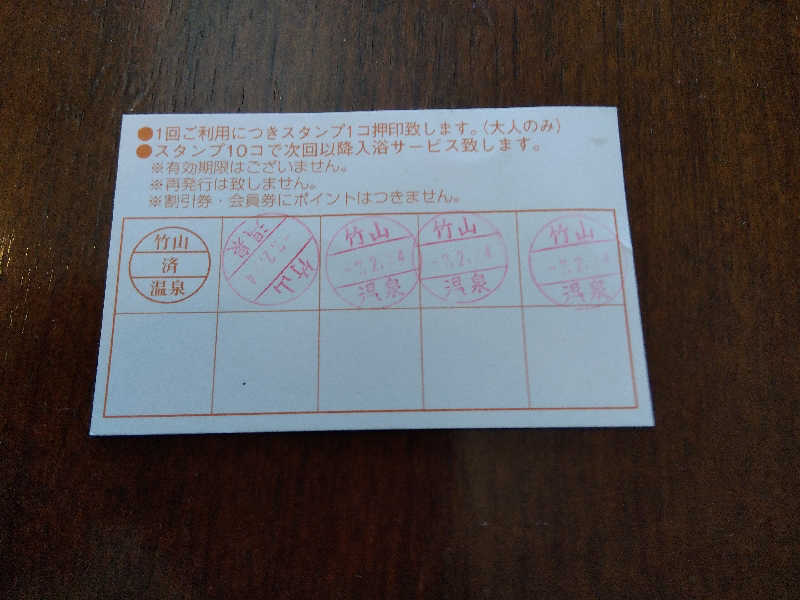 ●1回ご利用につきスタンプ1コ押印致します。(大人のみ)
●スタンプ10コで次回以降入浴サービス致します。
※有効期限はございません。
※再発行は致しません。
※割引券・会員券にポイントはつきません。
竹山
済
温泉
竹山
温泉
竹山
温泉
竹山
温泉
竹山
温泉